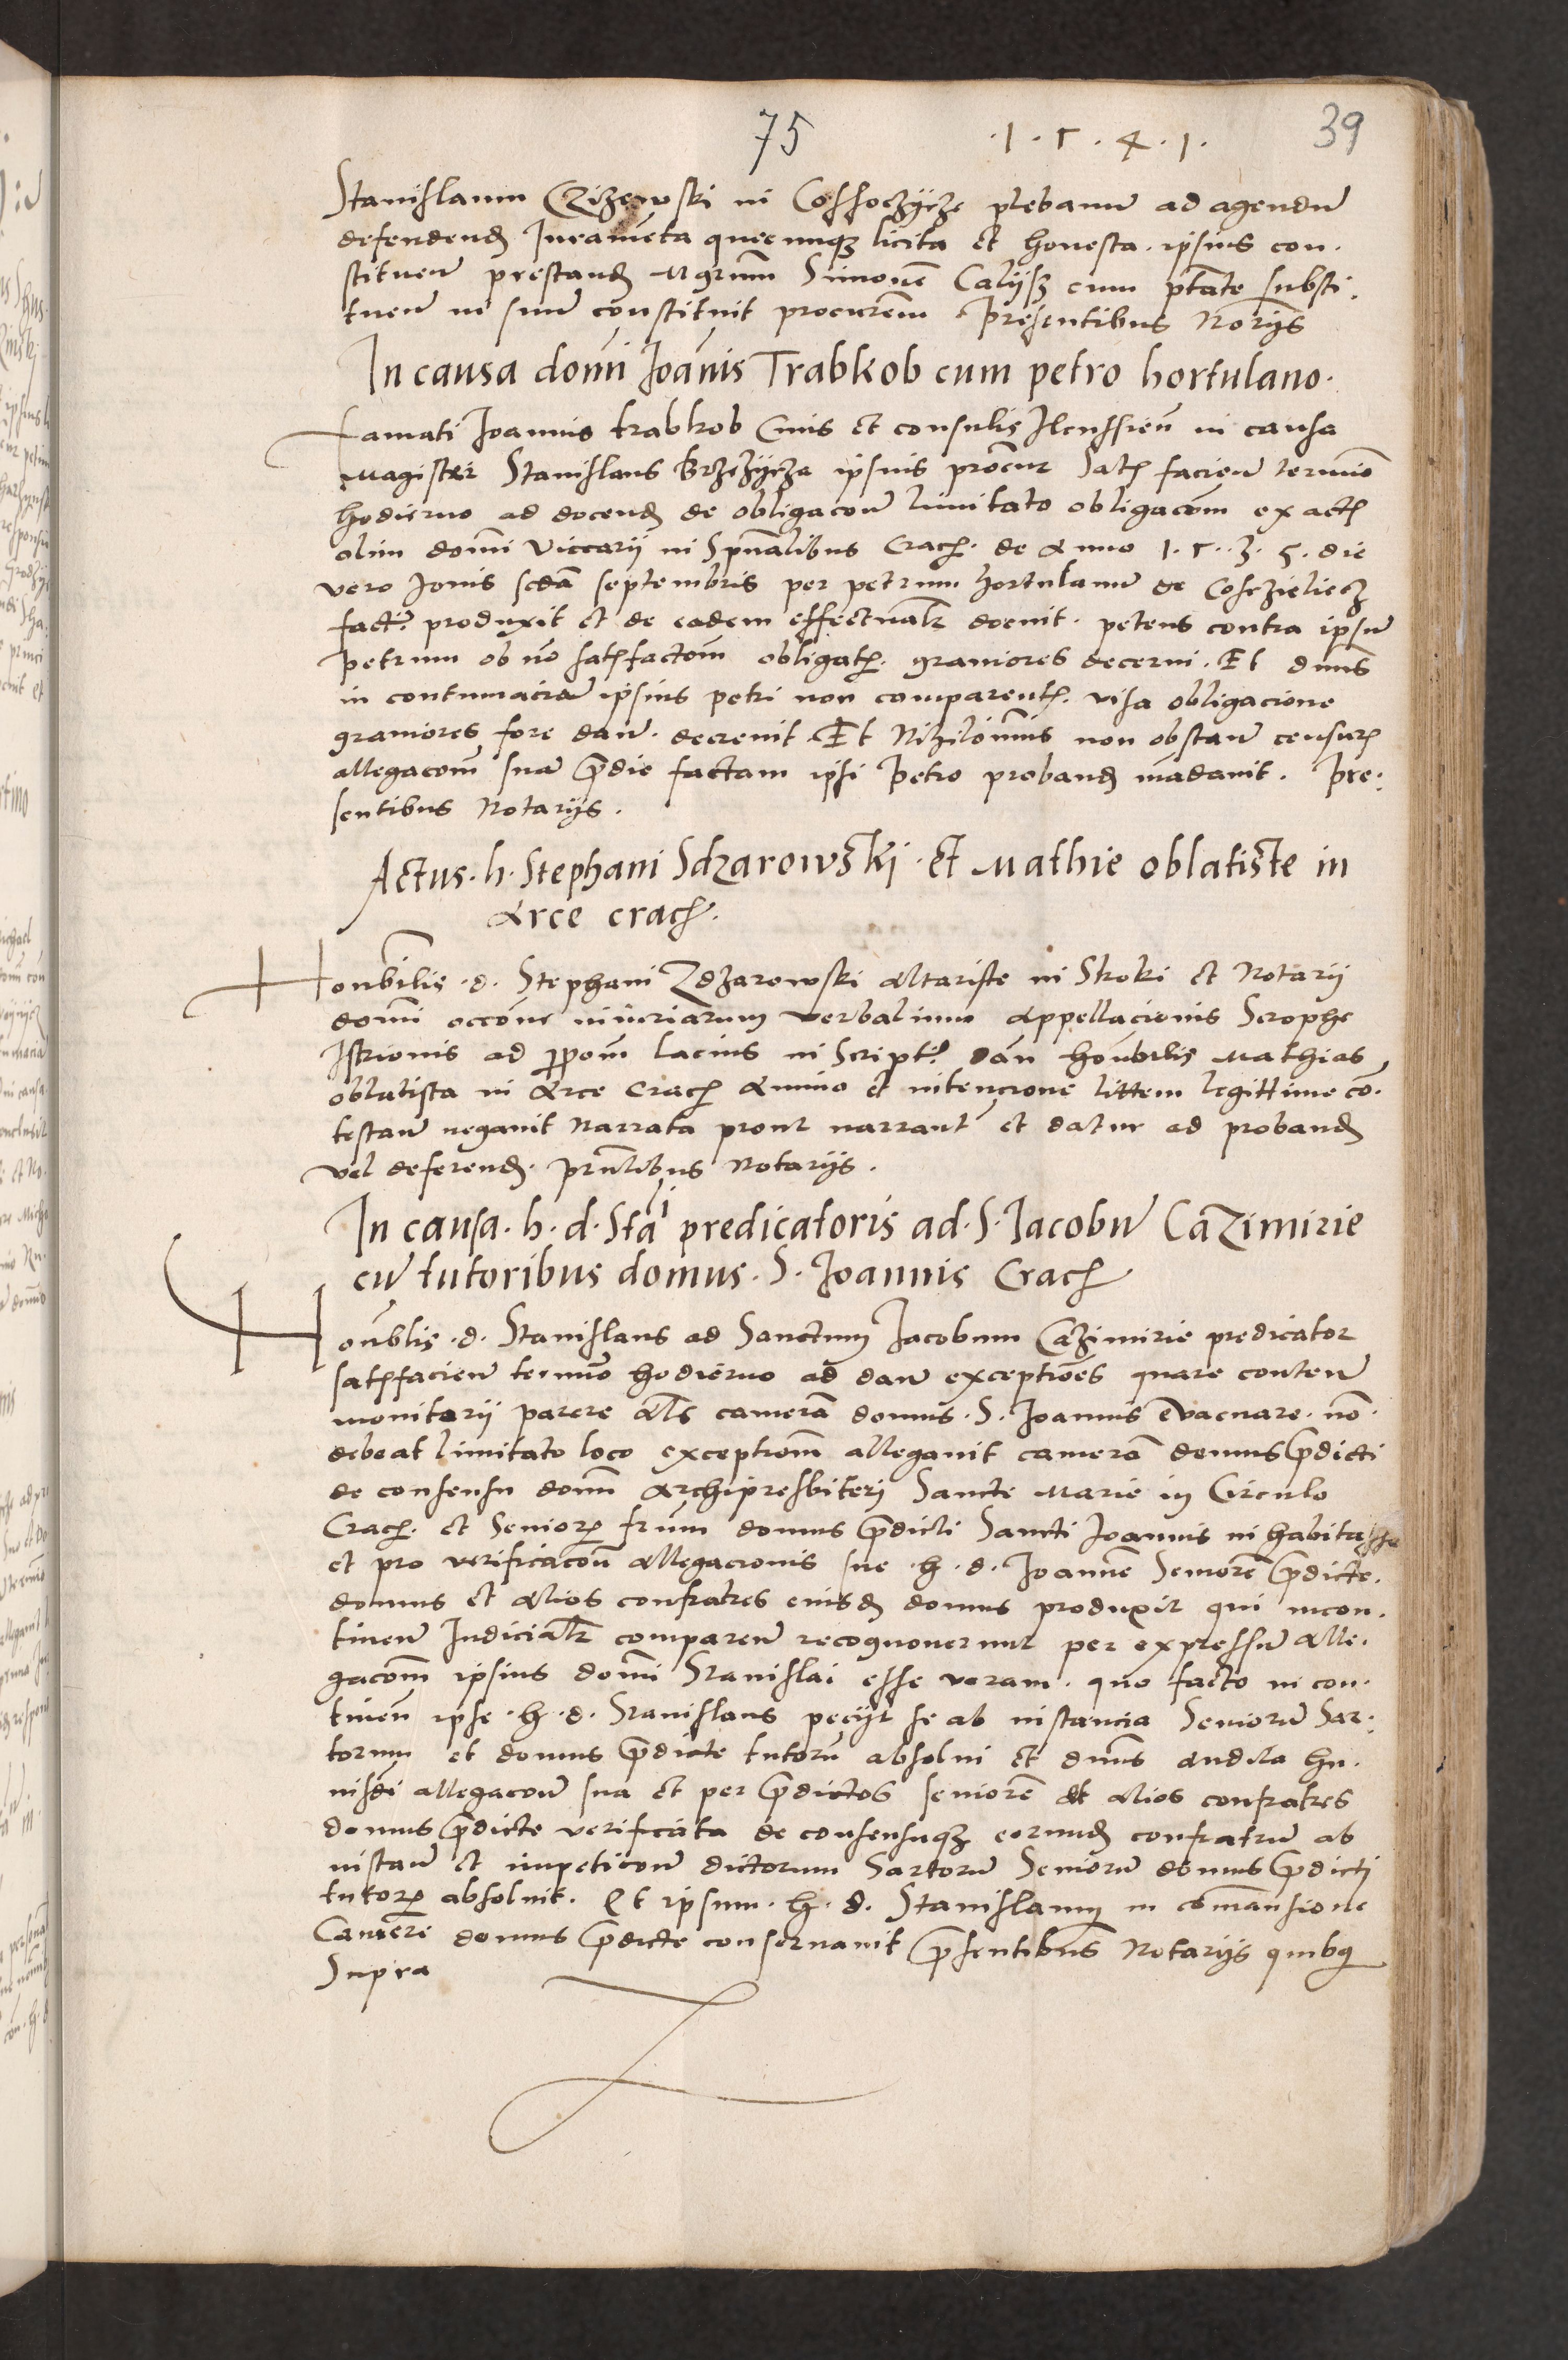 75 ·1·5·4·1· 39
Stanislaum Czizewski in Cossoczycze plebanū ad agendū
defendend Iuramēta quecunqz licita et honesta · ipsius con·
stituen̄ prestand Mgrum Simonē Calijsz cum ptāte substi·
tuen̄ in suū constituit procurēm · Presentibus Norijs
In causa domī Ioānis Trabkob cum petro hortulano·
Famati Ioannis trabkob Ciuis et consulis Ilkussien̄ in causa
Magister Stanislaus Brzezycza ipsius procur̄ Satis facien̄ termīo
hodierno ad docend de obligacoen̄ limitato obligacōm ex actis
olim domī Viccarij in Spūalibus Crac. de Anno 1·5·3·5· die
vero Iouis scdā septembris per petrum hortulanū de Cosczieliecz
factū produxit et de eadem effectualr̄ docuit · petens contra ipsū
Petrum ob nō satisfactōm obligatis. grauiores decerni. Et dnus
in contumaciam ipsius petri non comparentis. visa obligacione
grauiores fore dan̄. decreuit. Et Nihilomīus non obstan̄ censuris
allegacōm suā pdie factam ipsi Petro proband mādauit. Pre·
sentibus Notarijs.
Actus·h·Stephani Sdzarowski·et Mathie oblatiste in
Arce crac.
Honōbilis·d· Stephani Zdzarowski altariste in Skoki et Notarij
domī occōne iniuriarum verbalium appellacionis Scrophe
Istrionis ad ppōm lacius in Script· dan̄ honōbilis Mathias
oblatista in Arce Crac Animo et intencione littem legittime cō·
testan̄ negauit Narrata prout narrant̄ et datur ad proband
vel deferend. prntibus Notarijs.
In causa·h·d·Stāli predicatoris ad·S·Iacobū Cazimirie
cū tutoribus domus·S·Ioannis Crac
Honōblis·d·Stanislaus ad Sanctum Iacobum Cazimirie predicator
satisfacien̄ termīo hodierno ad dan̄ exceptiōes quare conten̄
monitorij parere als camerā domus·S·Ioannis euacuare·nō·
debeat limitato loco exceptiom̄ allegauit camerā domus pdicti
de consensu domī Archipresbiteri Sancte Marie in Circulo
Crac. et Senior frūm domus pdicti Sancti Ioannis inhabitasse
et pro verificacōn̄ allegacionis sue·h·d·Ioannē Seniorē pdicte·
domus et alios confratres eiusd domus produxit qui incon·
tinen̄ Iudicialr̄ comparen̄ recognouerunt per expressū alle·
gacōm ipsius domī Stanislai esse veram · quo facto in con·
tinen̄ ipse·h·d·Stanislaus pecijt se ab instancia Seniorū Sar·
torum et domus pdicte tutorū absolui et dnus audita hu·
iusdi allegacoen̄ sua et per pdictos seniorē et alios confratres
domus pdicte verificata de consensuqz eorund confratrū ab
instan̄ et impeticoen̄ dictorum Sartorū Seniorū domus pdicti
tutor absoluit. Et ipsum·h·d·Stanislaum in cōmansione
Camere domus pdicte conseruauit psentibus Notarijs quibus
Supra